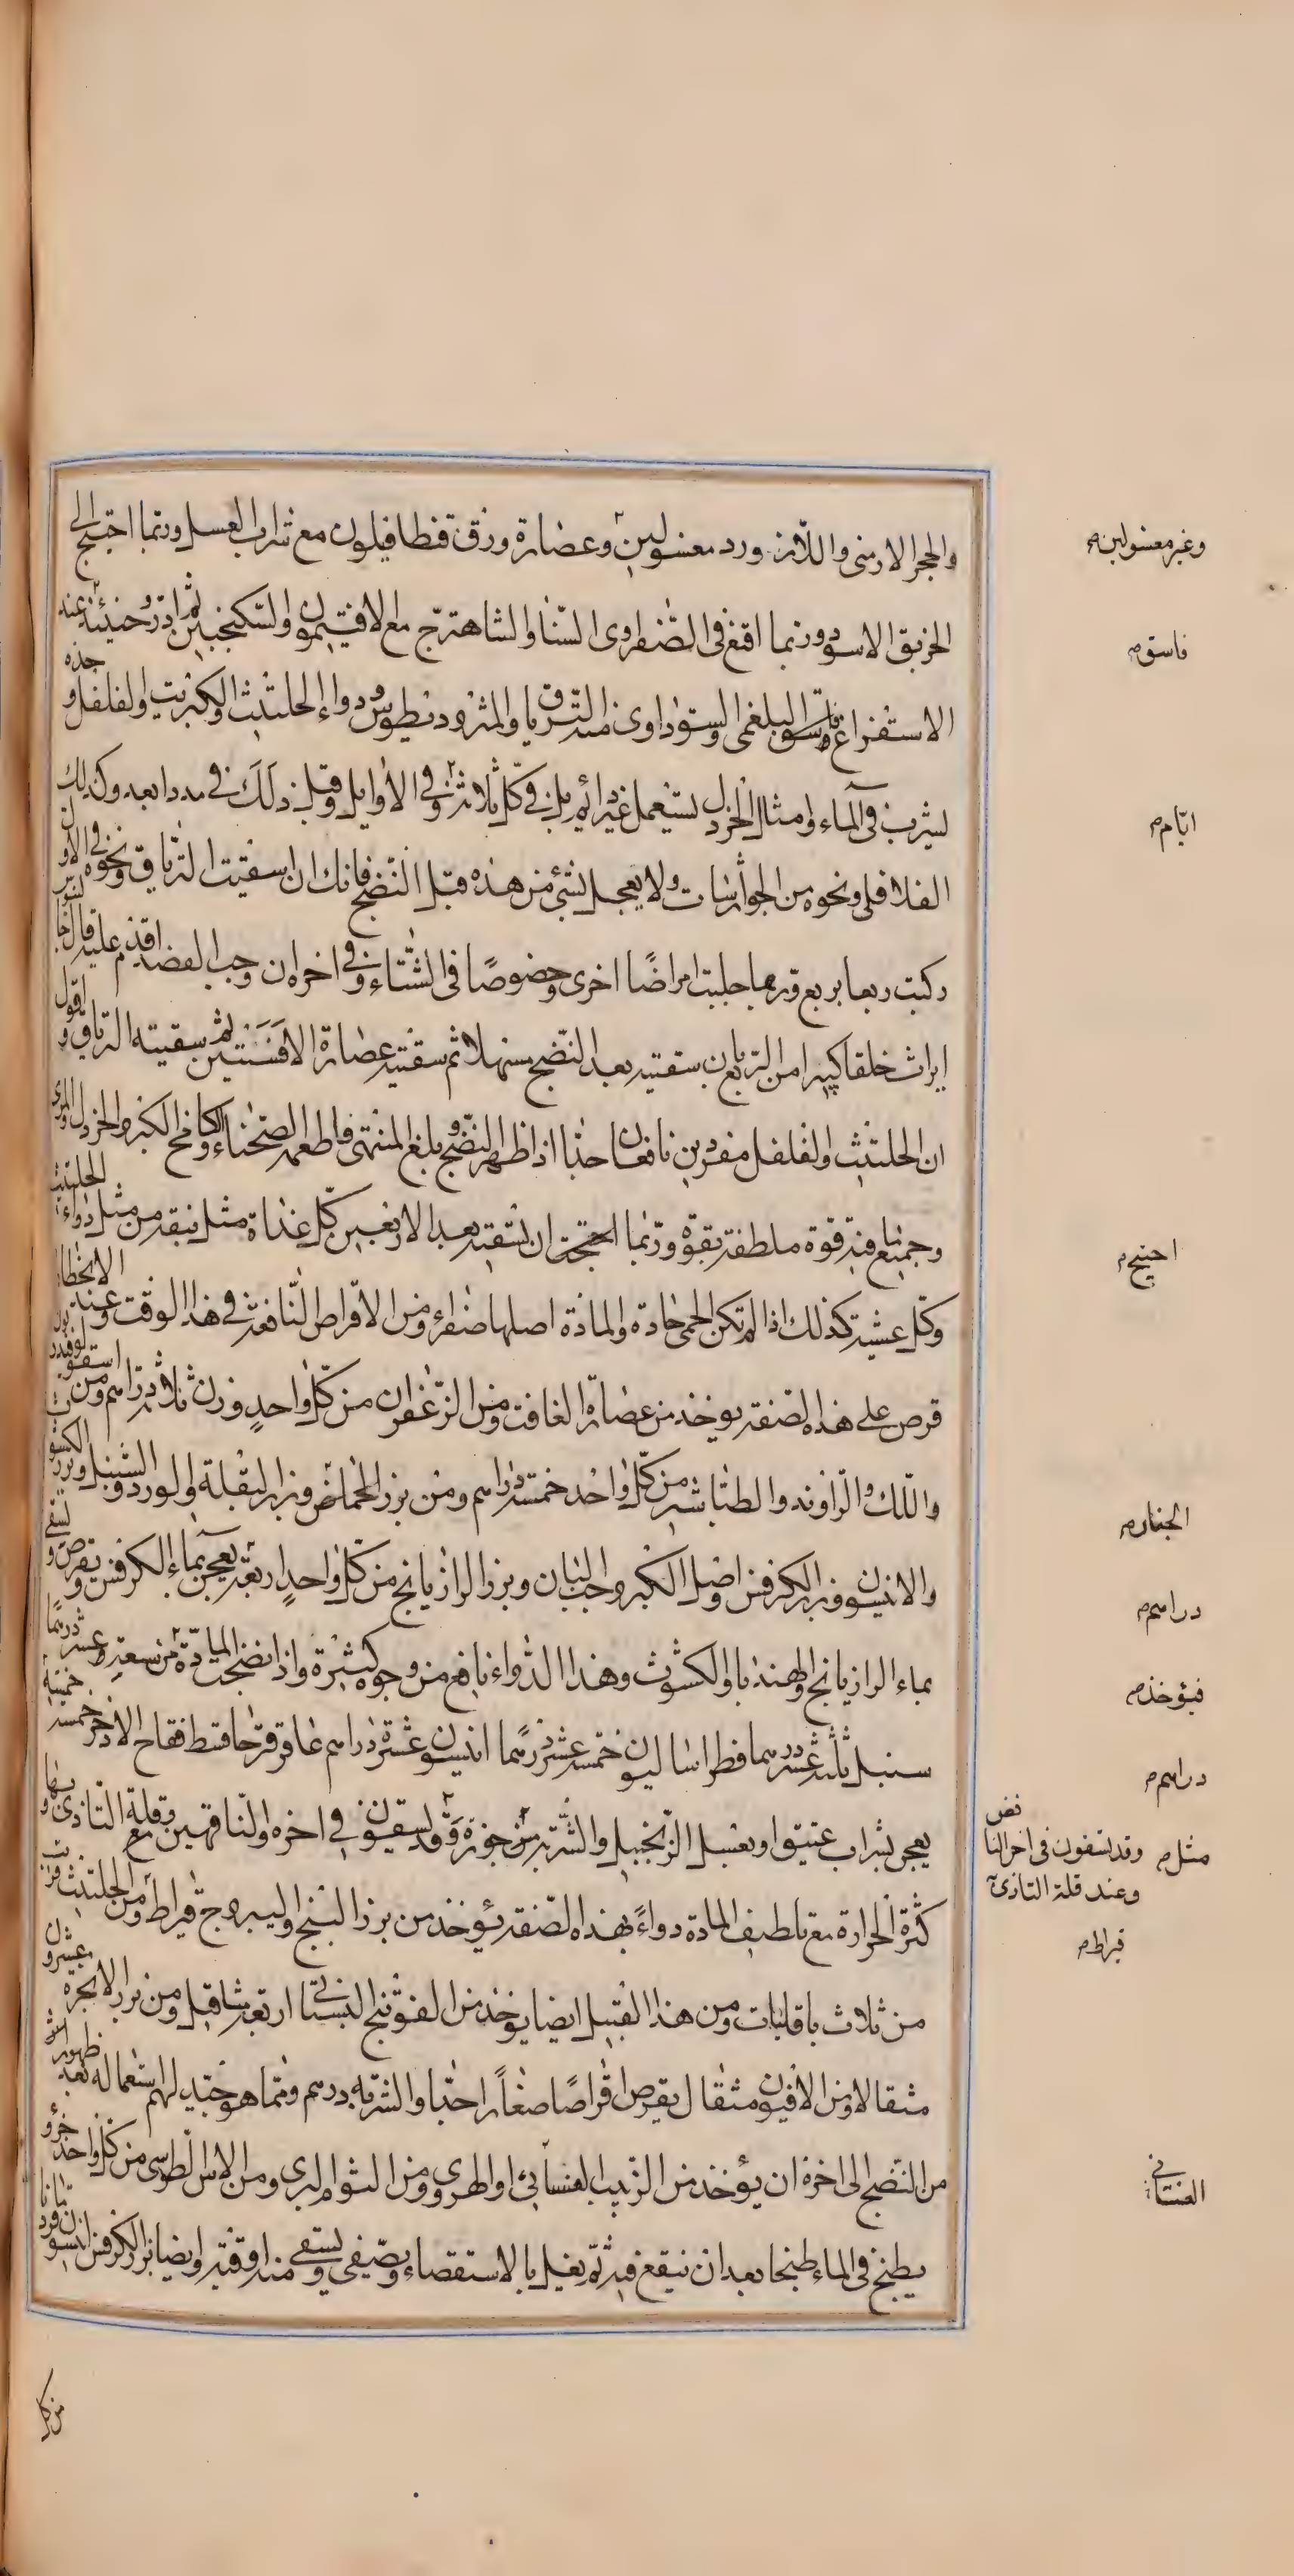 والحجر الارمنى واللازورد معسولين وعصارة ورق قنطافيلون مع شراب العسل وربما احتيج الى
الخربق الاسود وربما اقنع فى الصفراوى السنا والشاهترج مع الافتيمون والسكنجبين ثم ادر وحينئذ عند
الاستفراغ فاسق البلغمى والسوداوى من الترياق والمثروديطوس ودواء الحلتيث والكبريت والفلفل وحده
يشرب فى الماء وامثال الخردل يستعمل غير دايم بل فى كل ثلاثة وفى الاوايل وقبل ذلك فى مدد ابعد وكذلك
الفلافلى ونحوه من الجوارشات ولا يعجل بشئ من هذه قبل النضج فانك ان سقيت الترياق ونحوه فى الاول
ركبت ربعا بربع وربما جلبت امراضا اخرى وخصوصا فى الشتاء وفى اخره ان وجب الفصد اقدم عليه قال جالينوس
ابراث خلقا كثيرا من الربع بان سقيته بعد النضج مسهلا ثم سقيته عصارة الافسنتين ثم سقيته الترياق واقول
ان الحلتيث والفلفل مفردين نافعان جدا اذا ظهر النضج وبلغ المنتهى فاطعمه الصحناء وكامخ الكبر والخردل والمرى
وجميع ما فيه قوة ملطفة بقوة وربما احتجت ان تسقيه بعد الاربعين كل غداة مثل نبقة من مثل دواء الحلتيث
وكل عشية كذلك اذا لم تكن الحمى حادة والمادة اصلها صفراء ومن الاقراص النافعة فى هذا الوقت وعند الانحطاط
قرص على هذه الصفة يوخذ من عصارة الغافت ومن الزعفران من كل واحد وزن ثلاثة دراسم ومن اسقولوقندريون
واللك والراوند والطباشير من كل واحد خمسة دراسم ومن بزر الحماض وبزر البقلة والورد والسنبل وبزر الكشوث
والانيسون وبزر الكرفس واصل الكبر وحب البان وبزر الرازيانج من كل واحد اربعة يعجن بماء الكرفس ويقرص ويسقى
بماء الرازيانج والهندبا والكشوث وهذا الدواء نافع من وجوه كثيرة واذا نضجت المادة من سعتر وعشر درهما
سنبل ثلثة عشر درسما فطراساليون خمسة عشر درسما انيسون عشرة دراسم عاقرقرحا قسط فقاح الاذخر خمسة خمسة
يعجن بشراب عتيق او بعسل الزنجبيل والشربة من جوزة وقد يسقون فى اخره والناقهين مع قلة التاذى بها و
كثرة الحرارة مع تلطيف المادة دواء بهذه الصفة يؤخذ من بزر البنج واليبروج قيراط ومن الحلتيث
من ثلاث باقليات ومن هذا القبيل ايضا يوخذ من الفوتنج البستانى اربعة مثاقيل ومن بزر الانجره عشرون
مثقالا ومن الافيون مثقال يقرص اقراصا صغارا جدا والشربة درسم ومما هو جيد لهم استعماله بعد ظهور اثر
من النضج الى اخره ان يؤخذ من الزبيب او الهروى ومن الثوم البرى ومن الاس الطوسى من كل واحد جزو
يطبخ فى الماء طبخا بعد ان ينقع فيه ثم يغلى بالاستقصاء ويصفى ويسقى منه اوقية وايضا بزر الكرفس انيسون
من كل
وغير معسولين
فاسق
ايام
احتيج
الجلنار
دراسم
فيؤخذ
دراسم
مثل
وقد يسقون فى اخر النا
قض
وعند قلة التاذى
قيراط